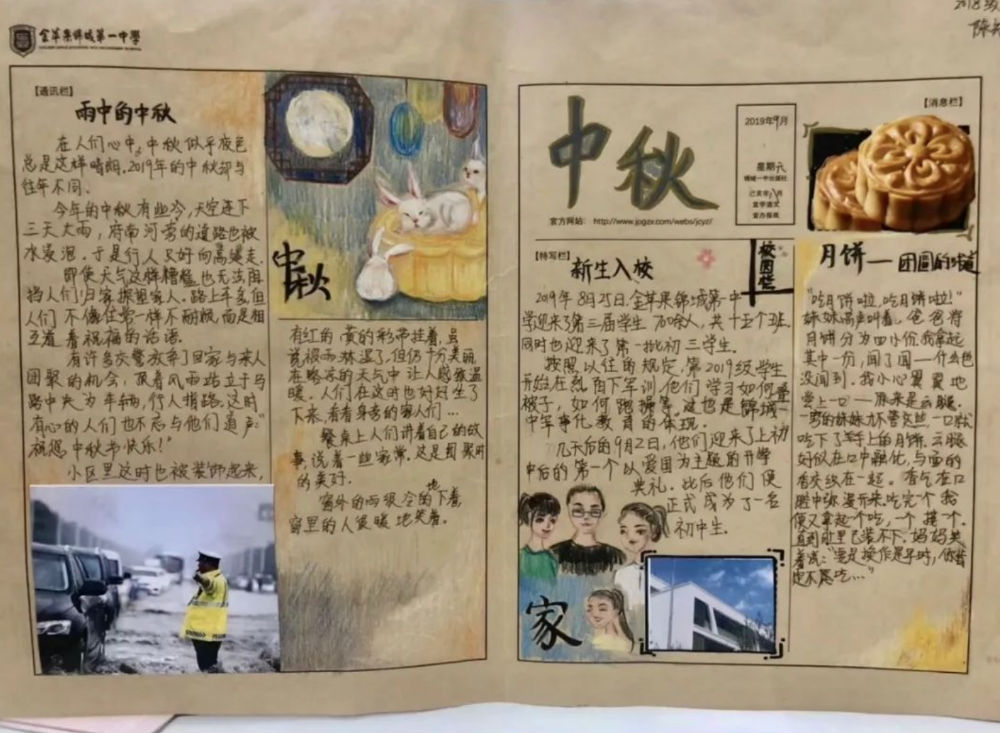 金苹果锦城第一中学
2018级
【通讯栏】
雨中的中秋
在人们心中,中秋似乎夜色
总是这样晴朗.2019年的中秋却与
往年不同.
今年的中秋有些冷,天空连下
三天大雨,府南河旁的道路也被
水浸泡.于是行人只好向高处走.
即使天气这样糟糕也无法阻
挡人们归家探望家人.路上车多,但
人们不像往常一样不耐烦,而是相
互道着祝福的话语.
有许多交警放弃了回家与家人
团聚的机会,跟着风雨站立于马
路中央为车辆,行人指路.这时
有心的人们也不忘与他们道声:"
祝您中秋节快乐!"
小区里这时也被装饰起来,
中秋
有红的,黄的彩带挂着,虽
然被雨淋湿了,但仍十分美丽
在略凉的天气中让人感觉温
暖.人们在这时也好好坐了
下来,看看身旁的家人们…
餐桌上人们讲着自己的故
事,说着一些家常.这是团聚时
的美好.
窗外的雨很冷地下着
窗里的人很暖地笑着.
中秋
2019年9月
星期六
锦城一中出版社
官方网站: http://www.jogzx.com/webs/jcyz/
【消息栏】
【特写栏】
新生入校
校园栏
2019年8月25日,金苹果锦城第一中
学迎来了第三届学生760余人,共十五个班.
同时也迎来了第一批初三学生.
按照以往的规定,第2019级学生
开始在烈日下军训,他们学习如何叠
被子,如何跑操等.这也是锦城一
中军事化教育的体现.
几天后的9月2日,他们迎来了上初
中后的第一个以爱国为主题的开学
典礼.此后他们便
正式成为了一名
初中生.
家
月饼—团圆的味道
"吃月饼啦,吃月饼啦!"
妹妹高声叫着.爸爸将
月饼分为四小份,我拿起
其中一份,闻了闻—什么也
没闻到.我小心翼翼地
尝上一口—原来是云腿.
一旁的妹妹才不管这些,一口就
吃下了手上的月饼.云腿
好似在口中融化,与面的
香交织在一起.香气在口
腔中弥漫开来.吃完一个我
便又拿起一个吃,一个接一个.
直到肚里已装不下.妈妈笑
着说:"要是换作是平时,你曾
也不愿吃…"